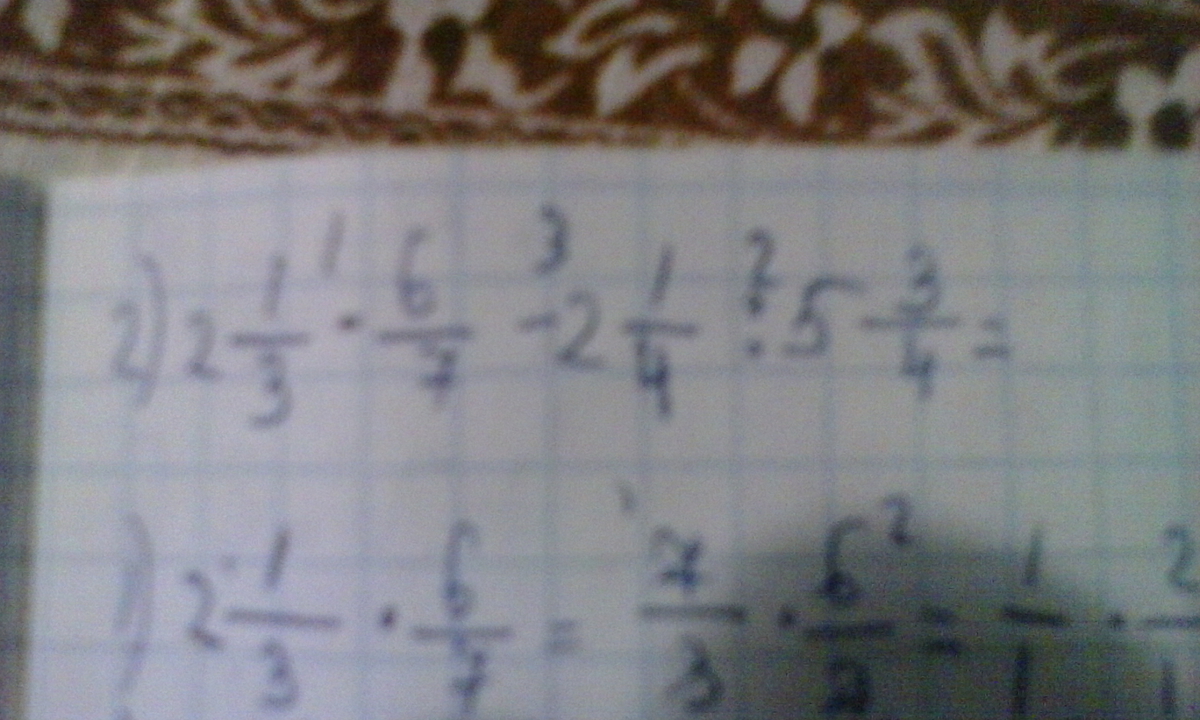 2) 2 1/3 ¹ · 6/7 ³ - 2 1/4 ² : 5 3/4 =
1) 2 1/3 · 6/7 = 7/3 · 6²/7 = 1/1 · 2/1